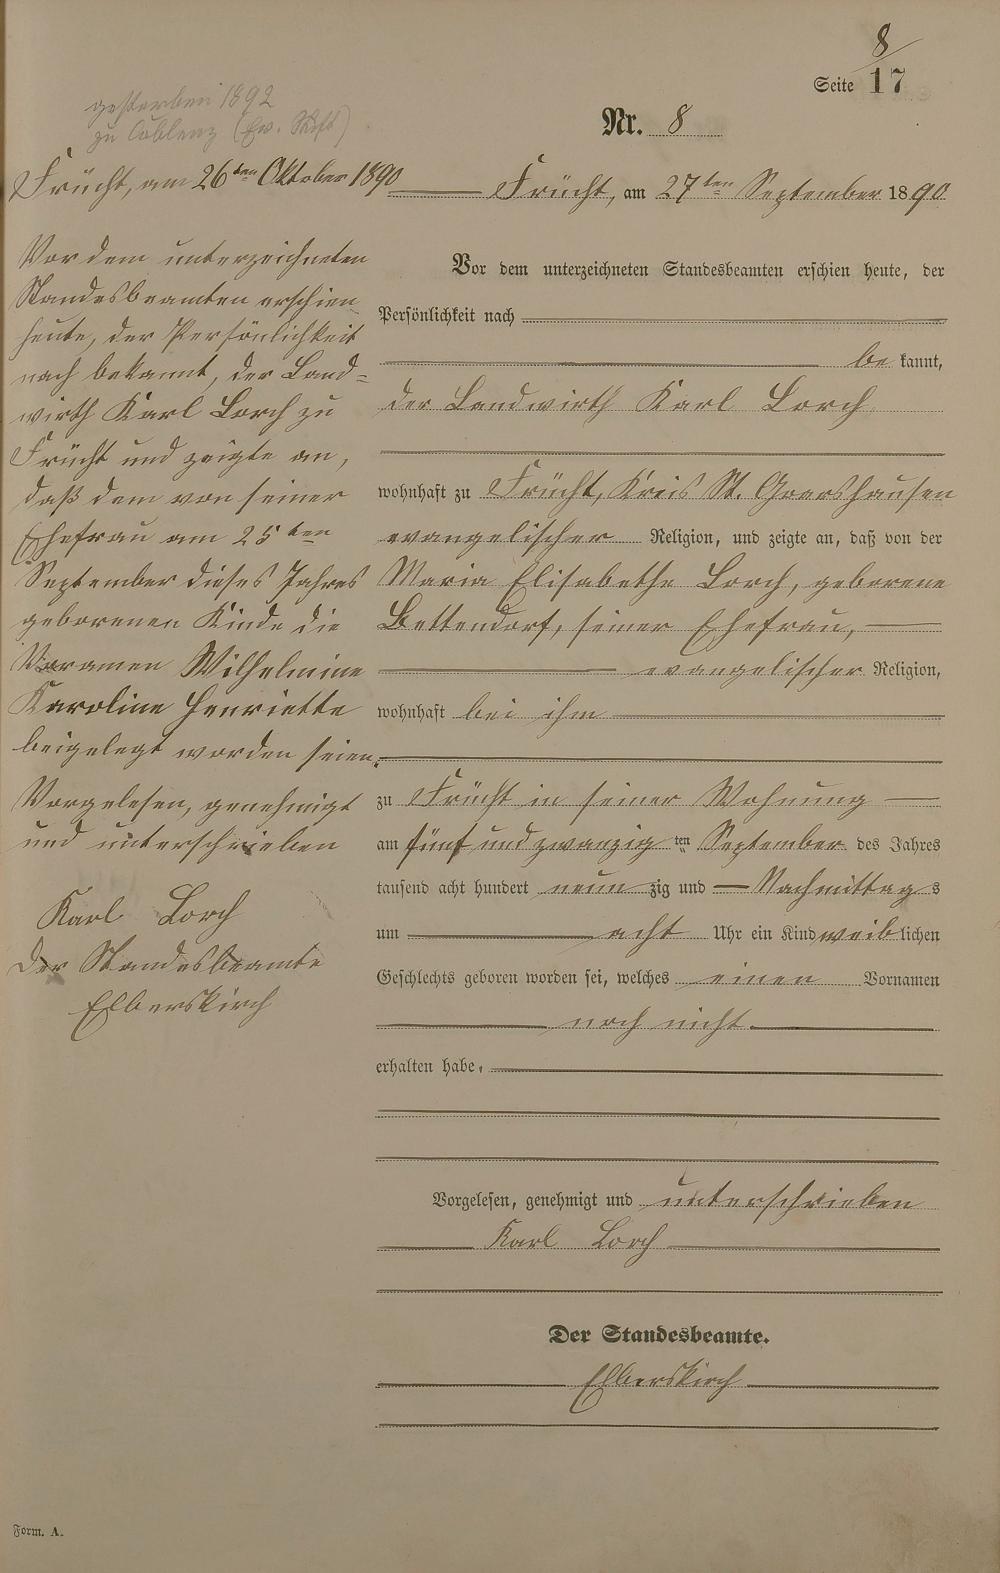 8
Seite 17
gestorben 1892
zu Coblenz (Ev. Stift)
Nr. 8
Frücht, am 26ten Oktober 1890
Vor dem unterzeichneten
Standesbeamten erschien
heute, der Persönlichkeit
nach bekannt, der Land=
wirth Karl Lorch zu
Frücht und zeigte an,
daß dem von seiner
Ehefrau am 25ten
September dieses Jahres
geborenen Kinde die
Vornamen Wilhelmine
Karoline Henriette
beigelegt worden seien.
Vorgelesen, genehmigt
und unterschrieben
Karl Lorch
Der Standesbeamte
Elberskirch
Frücht, am 27ten September 1890
Vor dem unterzeichneten Standesbeamten erschien heute, der
Persönlichkeit nach
bekannt,
der Landwirth Karl Lorch
wohnhaft zu Frücht, Kreis St. Goarshausen
evangelischer Religion, und zeigte an, daß von der
Maria Elisabethe Lorch, geborene
Bettendorf, seiner Ehefrau,
evangelischer Religion,
wohnhaft bei ihm
zu Frücht in seiner Wohnung
am fünf und zwanzig ten September des Jahres
tausend acht hundert neunzig und Nachmittags
um acht Uhr ein Kind weiblichen
Geschlechts geboren worden sei, welches einen Vornamen
noch nicht
erhalten habe.
Vorgelesen, genehmigt und unterschrieben
Karl Lorch
Der Standesbeamte.
Elberskirch
Form. A.